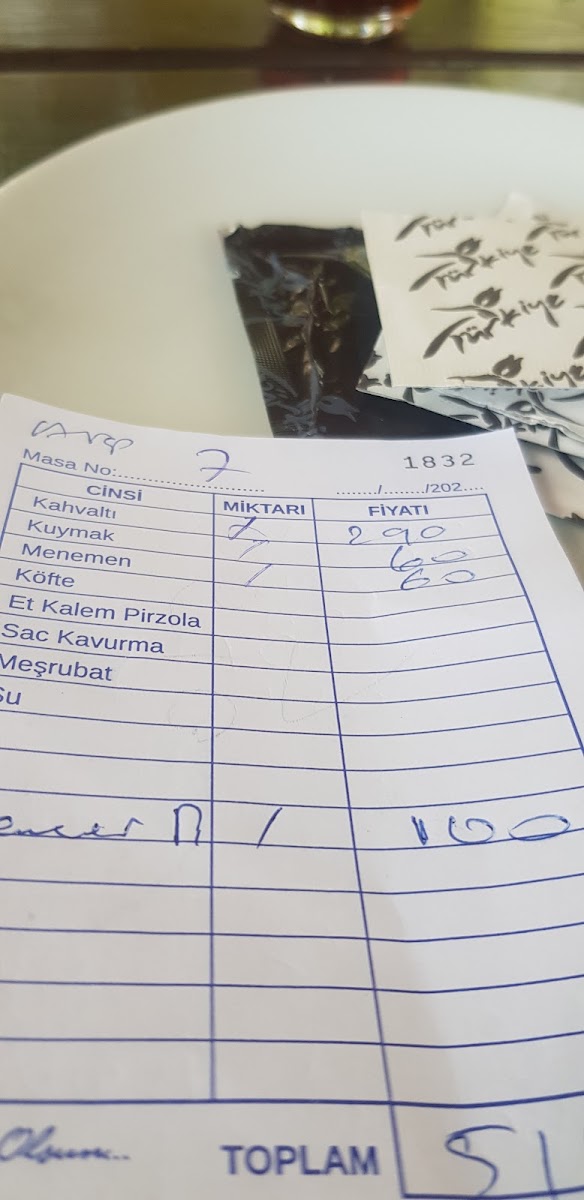 Türkiye
Türkiye
Türkiye
Masa No:.......... 7
1832
......./......./202....
CİNSİ MİKTARI FİYATI
Kahvaltı 2 290
Kuymak 1 60
Menemen 1 60
Köfte
Et Kalem Pirzola
Sac Kavurma
Meşrubat
Su
1 100
Olsun..
TOPLAM 51